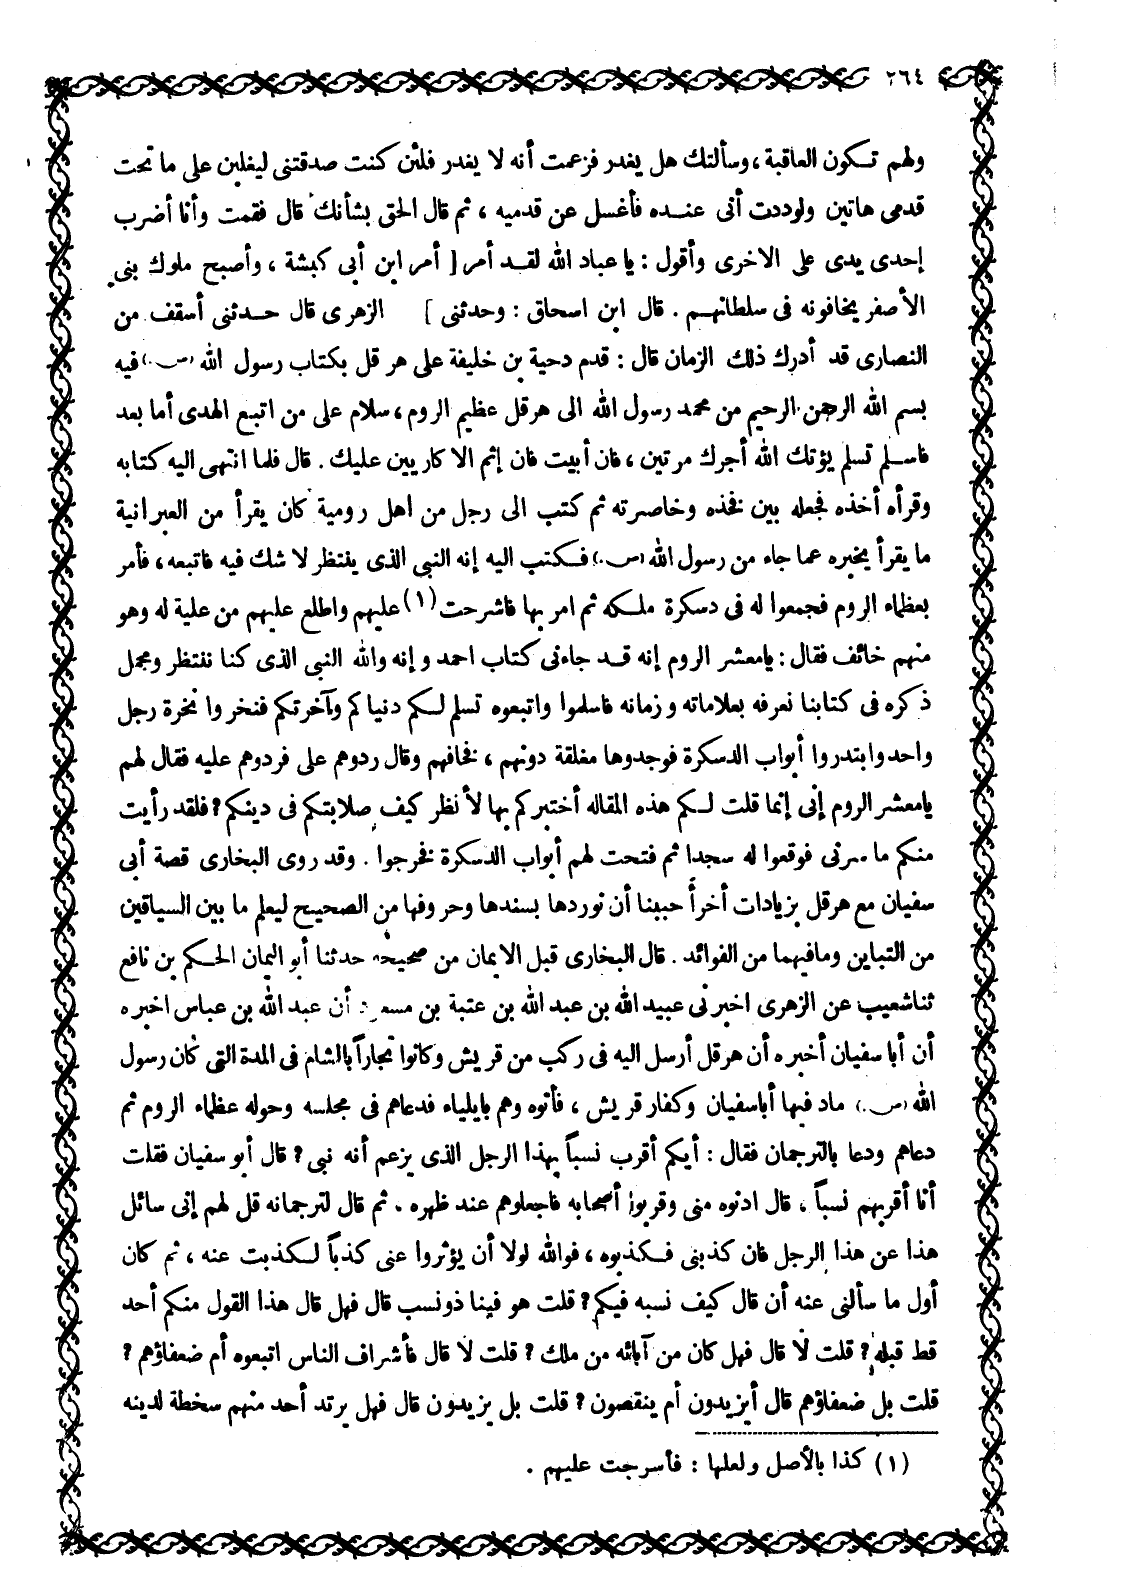 ٢٦٤
ولهم تكون العاقبة ، وسألتك هل يغدر فزعمت أنه لا يغدر فلئن كنت صدقتنى ليغلبن على ما تحت
قدمى هاتين ولوددت أنى عنده فأغسل عن قدميه ، ثم قال الحق بشأنك قال فقمت وأنا أضرب
إحدى يدى على الاخرى وأقول : يا عباد الله لقد أمر [ أمر ابن أبى كبشة ، وأصبح ملوك بنى
الأصفر يخافونه فى سلطانهم . قال ابن اسحاق : وحدثنى ] الزهرى قال حدثنى أسقف من
النصارى قد أدرك ذلك الزمان قال : قدم دحية بن خليفة على هرقل بكتاب رسول الله (ص.) فيه
بسم الله الرحمن الرحيم من محمد رسول الله الى هرقل عظيم الروم ، سلام على من اتبع الهدى أما بعد
فاسلم تسلم يؤتك الله أجرك مرتين ، فان أبيت فان إثم الاكاريين عليك . قال فلما انتهى اليه كتابه
وقرأه أخذه فجعله بين فخذه وخاصرته ثم كتب الى رجل من اهل رومية كان يقرأ من العبرانية
ما يقرأ يخبره عما جاء من رسول الله (ص.) فكتب اليه إنه النبى الذى ينتظر لا شك فيه فاتبعه ، فأمر
بعظماء الروم فجمعوا له فى دسكرة ملكه ثم امر بها فاشرحت (١) عليهم واطلع عليهم من علية له وهو
منهم خائف فقال : يامعشر الروم إنه قد جاءنى كتاب احمد وإنه والله النبى الذى كنا ننتظر ومجمل
ذكره فى كتابنا نعرفه بعلاماته وزمانه فاسلموا واتبعوه تسلم لكم دنياكم وآخرتكم فنخروا نخرة رجل
واحد وابتدروا أبواب الدسكرة فوجدوها مغلقة دونهم ، فخافهم وقال ردوهم على فردوهم عليه فقال لهم
يامعشر الروم إنى إنما قلت لكم هذه المقاله أختبركم بها لأنظر كيف صلابتكم فى دينكم ? فلقد رأيت
منكم ما سرنى فوقعوا له سجدا ثم فتحت لهم أبواب الدسكرة فخرجوا . وقد روى البخارى قصة أبى
سفيان مع هرقل بزيادات أخرأ حببنا أن نوردها بسندها وحروفها من الصحيح ليعلم ما بين السياقين
من التباين ومافيهما من الفوائد . قال البخارى قبل الايمان من صحيحه حدثنا أبو اليمان الحكم بن نافع
ثناشعيب عن الزهرى اخبرنى عبيد الله بن عبد الله بن عتبة بن مسعود أن عبد الله بن عباس اخبره
أن أبا سفيان أخبره أن هرقل أرسل اليه فى ركب من قريش وكانوا تجاراً بالشام فى المدة التى كان رسول
الله (ص.) ماد فيها أباسفيان وكفار قريش ، فأتوه وهم بايلياء فدعاهم فى مجلسه وحوله عظماء الروم ثم
دعاهم ودعا بالترجمان فقال : أيكم أقرب نسباً بهذا الرجل الذى يزعم أنه نبى ? قال أبو سفيان فقلت
أنا أقربهم نسباً ، قال ادنوه منى وقربوا أصحابه فاجعلوهم عند ظهره . ثم قال لترجمانه قل لهم إنى سائل
هذا عن هذا الرجل فان كذبنى فكذبوه ، فوالله لولا أن يؤثروا عنى كذباً لكذبت عنه ، ثم كان
أول ما سألنى عنه أن قال كيف نسبه فيكم ? قلت هو فينا ذونسب قال فهل قال هذا القول منكم أحد
قط قبله ? قلت لا قال فهل كان من آبائه من ملك ? قلت لا قال فأشراف الناس اتبعوه أم ضعفاؤهم ?
قلت بل ضعفاؤهم قال أيزيدون أم ينقصون ? قلت بل يزيدون قال فهل يرتد أحد منهم سخطة لدينه
(١) كذا بالأصل ولعلها : فأسرجت عليهم .